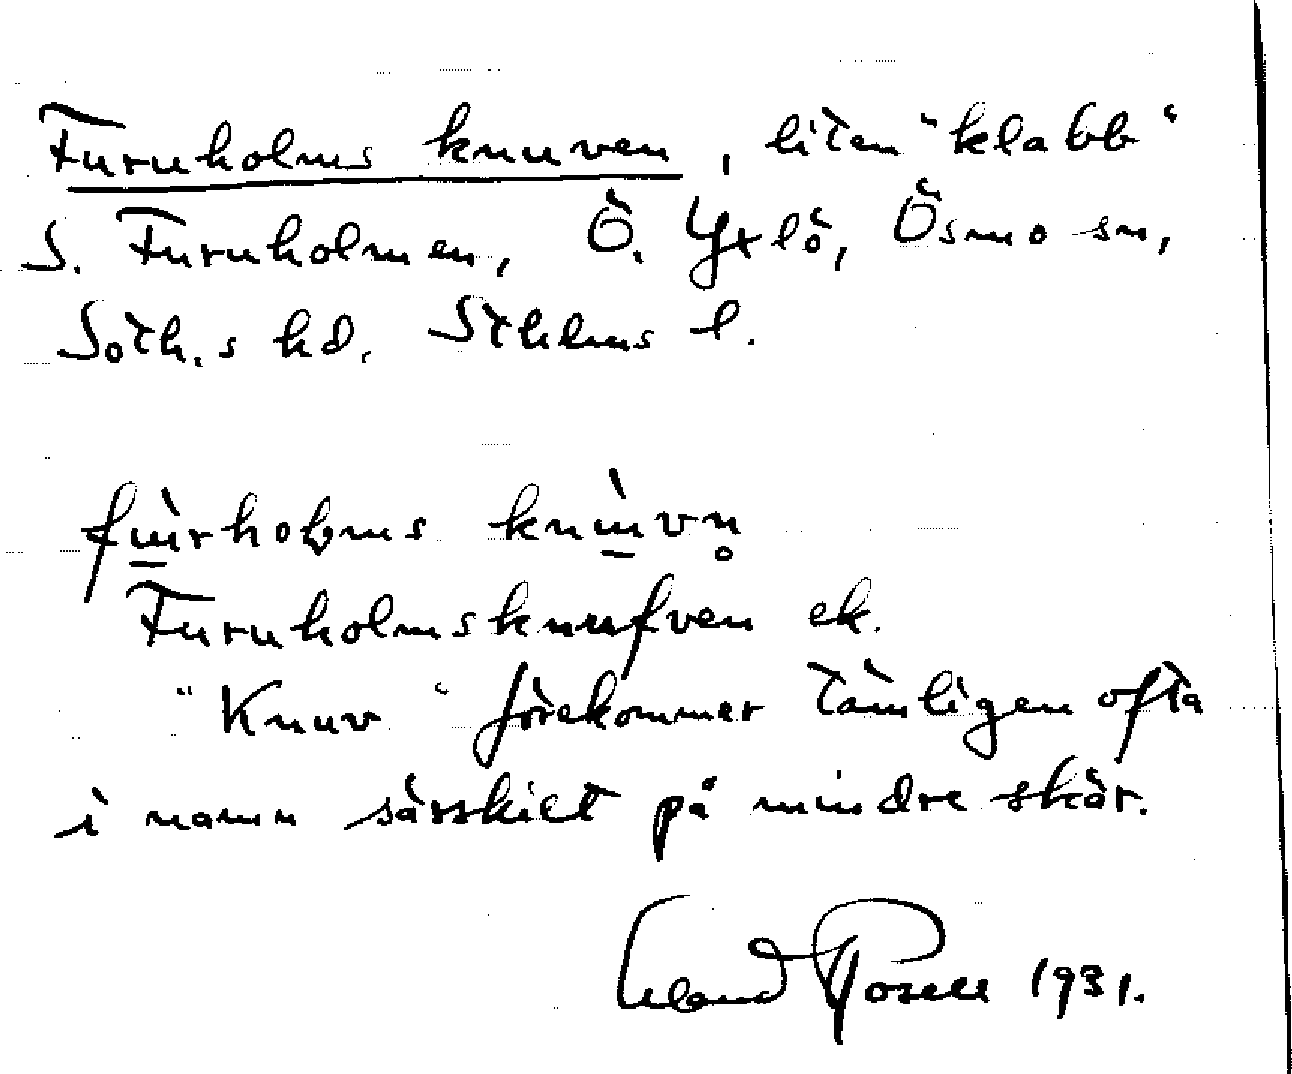 Furuholms knuven, liten "klabb"
S. Furuholmen, Ö. Yxlö, Ösmo sn,
Soth.s hd. Sthlms l.
fùrholms knùvn̥
Furuholmsknufven ek.
"Knuv" förekommer tämligen ofta
i namn särskilt på mindre skär.
Erland Rosell 1931.